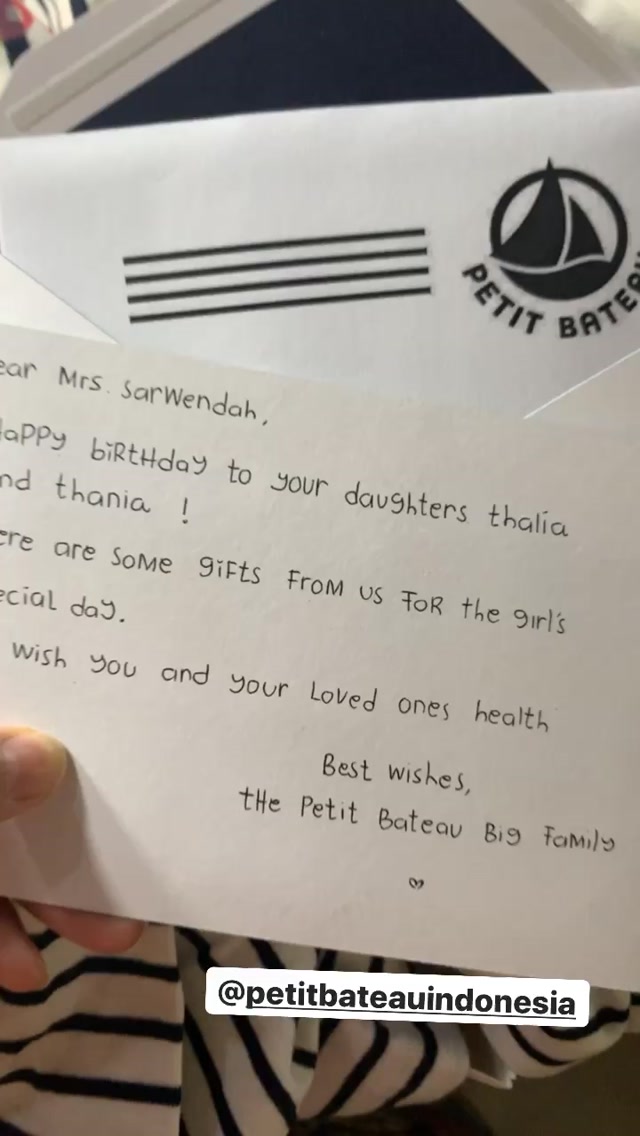 PETIT BATEAU
ear Mrs. Sarwendah,
HaPPy biRtHday to your daughters thalia
nd thania !
ere are soMe giFts FroM us FoR the girl's
ecial day.
wish you and your Loved ones health
Best wishes,
tHe Petit Bateau Big FaMily
@petitbateauindonesia